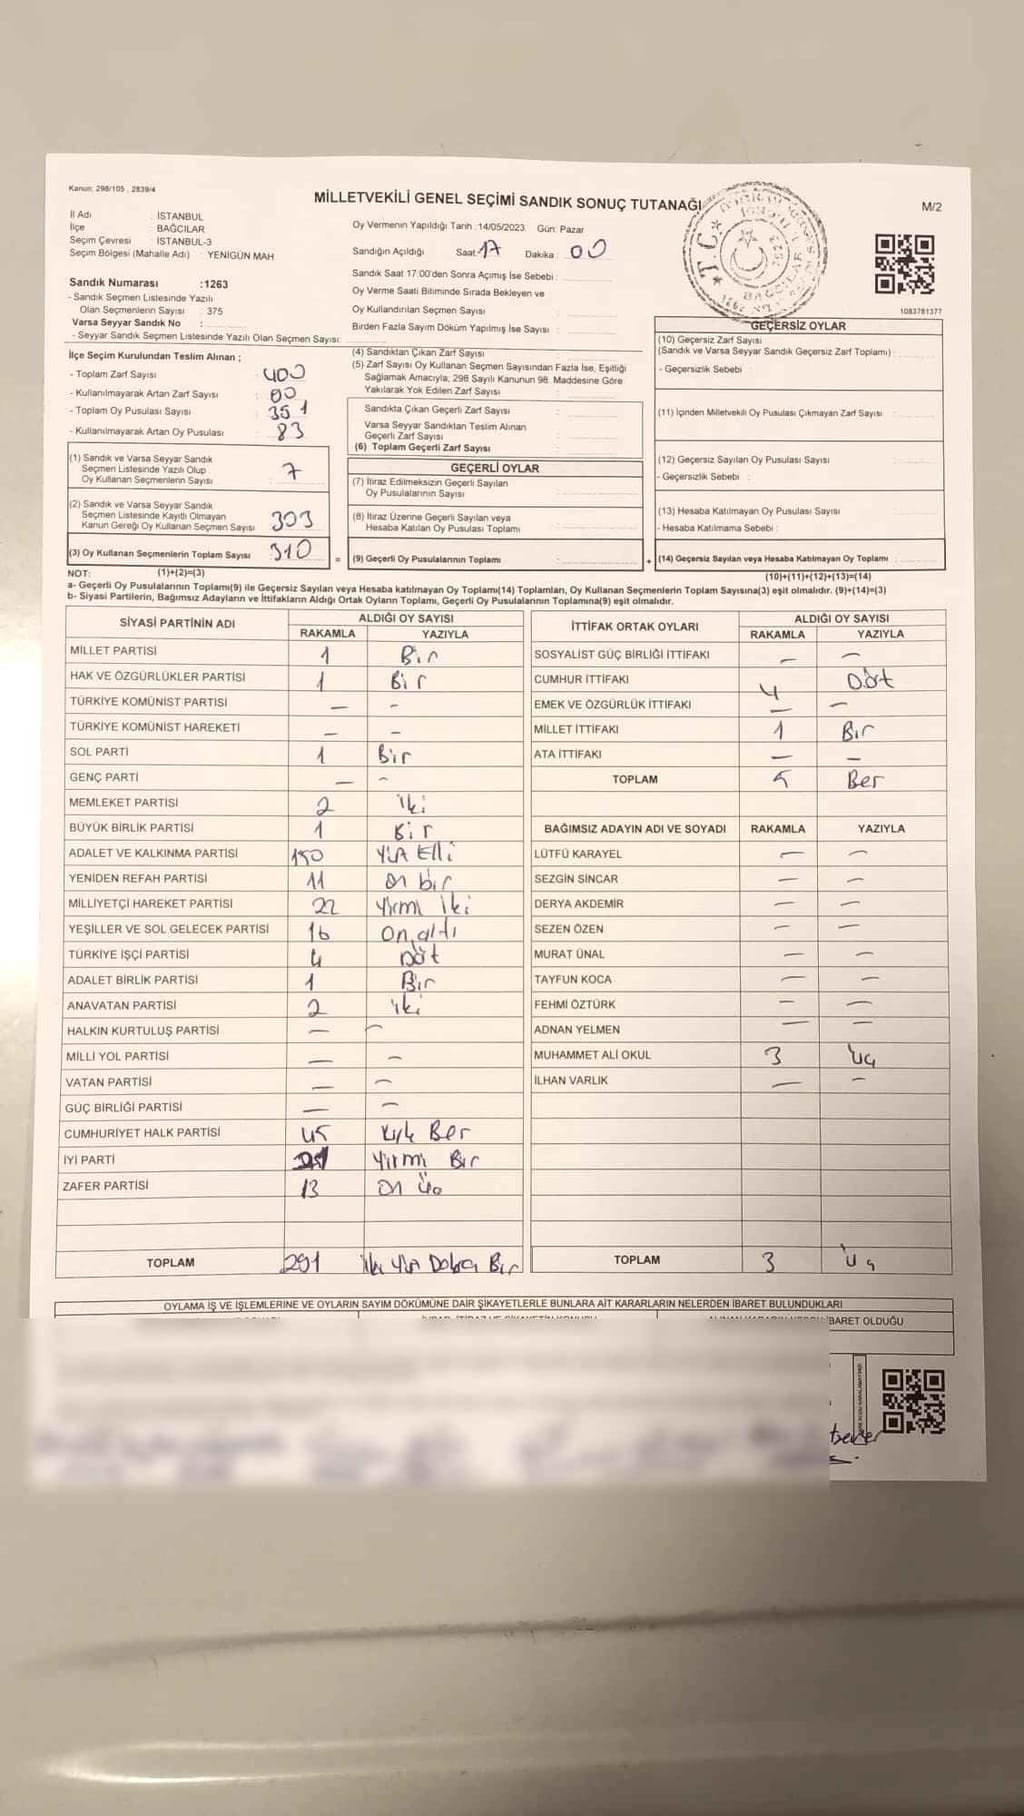 Kanun: 298/105 , 2839/4
MİLLETVEKİLİ GENEL SEÇİMİ SANDIK SONUÇ TUTANAĞI
M/2
İl Adı : İSTANBUL
İlçe : BAĞCILAR
Seçim Çevresi : İSTANBUL-3
Seçim Bölgesi (Mahalle Adı) : YENİGÜN MAH.
Oy Vermenin Yapıldığı Tarih : 14/05/2023 Gün: Pazar
Sandığın Açıldığı Saat: 17 Dakika : 00
Sandık Saat 17:00'den Sonra Açımış İse Sebebi :
Oy Verme Saati Bitiminde Sırada Bekleyen ve
Oy Kullandırılan Seçmen Sayısı :
Birden Fazla Sayım Döküm Yapılmış İse Sayısı :
T.C.
BAĞCILAR
1083781377
Sandık Numarası : 1263
- Sandık Seçmen Listesinde Yazılı
Olan Seçmenlerin Sayısı : 375
Varsa Seyyar Sandık No :
- Seyyar Sandık Seçmen Listesinde Yazılı Olan Seçmen Sayısı:
İlçe Seçim Kurulundan Teslim Alınan ;
- Toplam Zarf Sayısı : 400
- Kullanılmayarak Artan Zarf Sayısı : 00
- Toplam Oy Pusulası Sayısı : 351
- Kullanılmayarak Artan Oy Pusulası : 83
(1) Sandık ve Varsa Seyyar Sandık
Seçmen Listesinde Yazılı Olup
Oy Kullanan Seçmenlerin Sayısı : 7
(2) Sandık ve Varsa Seyyar Sandık
Seçmen Listesinde Kayıtlı Olmayan
Kanun Gereği Oy Kullanan Seçmen Sayısı 303
(3) Oy Kullanan Seçmenlerin Toplam Sayısı 310
(4) Sandıktan Çıkan Zarf Sayısı :
(5) Zarf Sayısı Oy Kullanan Seçmen Sayısından Fazla İse, Eşitliği
Sağlamak Amacıyla, 298 Sayılı Kanunun 98. Maddesine Göre
Yakılarak Yok Edilen Zarf Sayısı :
Sandıkta Çıkan Geçerli Zarf Sayısı :
Varsa Seyyar Sandıktan Teslim Alınan
Geçerli Zarf Sayısı :
(6) Toplam Geçerli Zarf Sayısı :
GEÇERLİ OYLAR
(7) İtiraz Edilmeksizin Geçerli Sayılan
Oy Pusulalarının Sayısı :
(8) İtiraz Üzerine Geçerli Sayılan veya
Hesaba Katılan Oy Pusulası Toplamı :
= (9) Geçerli Oy Pusulalarının Toplamı :
GEÇERSİZ OYLAR
(10) Geçersiz Zarf Sayısı
(Sandık ve Varsa Seyyar Sandık Geçersiz Zarf Toplamı) :
- Geçersizlik Sebebi :
(11) İçinden Milletvekili Oy Pusulası Çıkmayan Zarf Sayısı :
(12) Geçersiz Sayılan Oy Pusulası Sayısı :
- Geçersizlik Sebebi :
(13) Hesaba Katılmayan Oy Pusulası Sayısı :
- Hesaba Katılmama Sebebi :
+ (14) Geçersiz Sayılan veya Hesaba Katılmayan Oy Toplamı :
NOT: (1)+(2)=(3)
(10)+(11)+(12)+(13)=(14)
a- Geçerli Oy Pusulalarının Toplamı(9) ile Geçersiz Sayılan veya Hesaba katılmayan Oy Toplamı(14) Toplamları, Oy Kullanan Seçmenlerin Toplam Sayısına(3) eşit olmalıdır. (9)+(14)=(3)
b- Siyasi Partilerin, Bağımsız Adayların ve İttifakların Aldığı Ortak Oyların Toplamı, Geçerli Oy Pusulalarının Toplamına(9) eşit olmalıdır.
SİYASİ PARTİNİN ADI ALDIĞI OY SAYISI
RAKAMLA YAZIYLA
MİLLET PARTİSİ 1 Bir
HAK VE ÖZGÜRLÜKLER PARTİSİ 1 Bir
TÜRKİYE KOMÜNİST PARTİSİ — -
TÜRKİYE KOMÜNİST HAREKETİ — -
SOL PARTİ 1 Bir
GENÇ PARTİ — -
MEMLEKET PARTİSİ 2 iki
BÜYÜK BİRLİK PARTİSİ 1 Bir
ADALET VE KALKINMA PARTİSİ 150 Yüz Elli
YENİDEN REFAH PARTİSİ 11 On bir
MİLLİYETÇİ HAREKET PARTİSİ 22 Yirmi iki
YEŞİLLER VE SOL GELECEK PARTİSİ 16 On altı
TÜRKİYE İŞÇİ PARTİSİ 4 Dört
ADALET BİRLİK PARTİSİ 1 Bir
ANAVATAN PARTİSİ 2 iki
HALKIN KURTULUŞ PARTİSİ — -
MİLLİ YOL PARTİSİ — -
VATAN PARTİSİ — -
GÜÇ BİRLİĞİ PARTİSİ — -
CUMHURİYET HALK PARTİSİ 45 Kırk Beş
İYİ PARTİ 21 Yirmi Bir
ZAFER PARTİSİ 13 On Üç
TOPLAM 291 iki Yüz Doksan Bir
İTTİFAK ORTAK OYLARI ALDIĞI OY SAYISI
RAKAMLA YAZIYLA
SOSYALİST GÜÇ BİRLİĞİ İTTİFAKI — —
CUMHUR İTTİFAKI 4 Dört
EMEK VE ÖZGÜRLÜK İTTİFAKI — —
MİLLET İTTİFAKI 1 Bir
ATA İTTİFAKI — —
TOPLAM 5 Beş
BAĞIMSIZ ADAYIN ADI VE SOYADI RAKAMLA YAZIYLA
LÜTFÜ KARAYEL — —
SEZGİN SİNCAR — —
DERYA AKDEMİR — —
SEZEN ÖZEN — —
MURAT ÜNAL — —
TAYFUN KOCA — —
FEHMİ ÖZTÜRK — —
ADNAN YELMEN — —
MUHAMMET ALİ OKUL 3 Üç
İLHAN VARLIK — —
TOPLAM 3 Üç
OYLAMA İŞ VE İŞLEMLERİNE VE OYLARIN SAYIM DÖKÜMÜNE DAİR ŞİKAYETLERLE BUNLARA AİT KARARLARIN NELERDEN İBARET BULUNDUKLARI
İBARET OLDUĞU